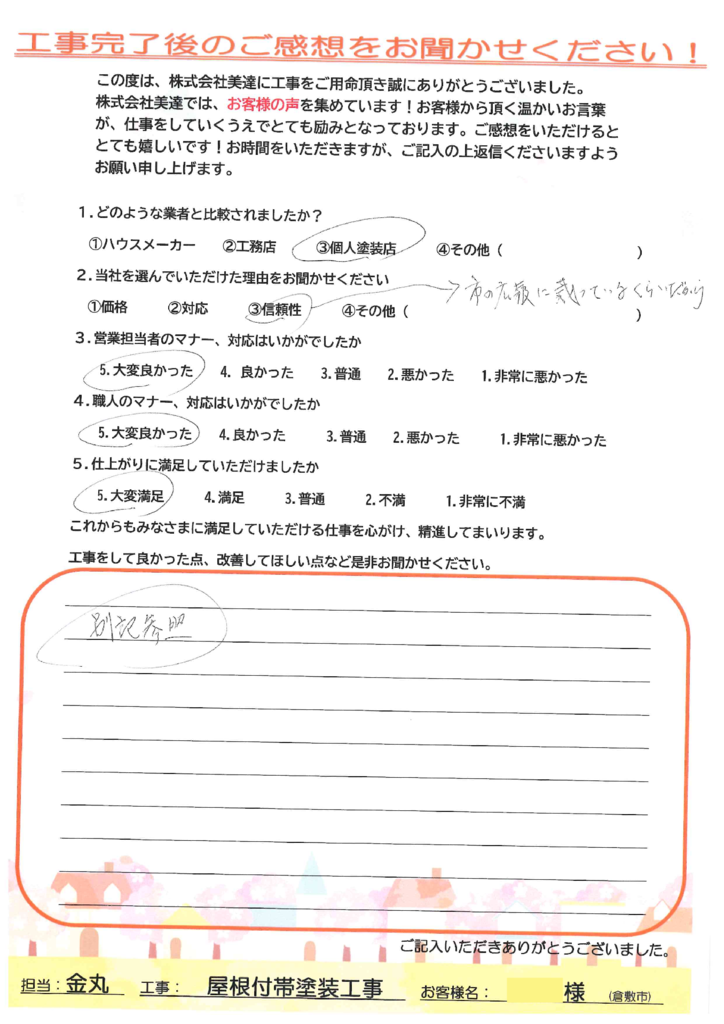 工事完了後のご感想をお聞かせください！
この度は、株式会社美達に工事をご用命頂き誠にありがとうございました。
株式会社美達では、お客様の声を集めています！お客様から頂く温かいお言葉
が、仕事をしていくうえでとても励みとなっております。ご感想をいただけると
とても嬉しいです！お時間をいただきますが、ご記入の上返信くださいますよう
お願い申し上げます。
１.どのような業者と比較されましたか？
①ハウスメーカー ②工務店 ③個人塗装店 ④その他（ ）
２.当社を選んでいただけた理由をお聞かせください
→市の広報に載っているくらいだから
①価格 ②対応 ③信頼性 ④その他（ ）
３.営業担当者のマナー、対応はいかがでしたか
5.大変良かった 4. 良かった 3.普通 2.悪かった 1.非常に悪かった
４.職人のマナー、対応はいかがでしたか
5.大変良かった 4.良かった 3.普通 2.悪かった 1.非常に悪かった
５.仕上がりに満足していただけましたか
5.大変満足 4.満足 3.普通 2.不満 1.非常に不満
これからもみなさまに満足していただける仕事を心がけ、精進してまいります。
工事をして良かった点、改善してほしい点など是非お聞かせください。
別記参照
ご記入いただきありがとうございました。
担当：金丸 工事： 屋根付帯塗装工事 お客様名： 様 (倉敷市)